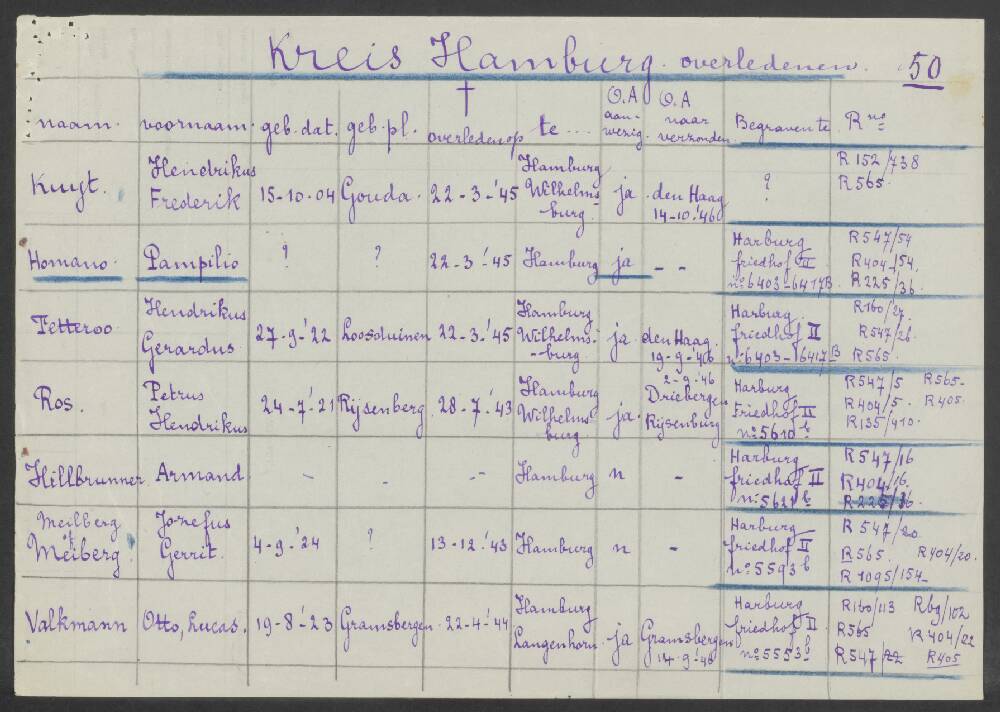 Kreis Hamburg. overledenen. 50
naam. voornaam. geb. dat. geb. pl. † overleden op te ... O.A aan-wezig. O.A naar verzonden. Begraven te R no
Kuyt. Hendrikus Frederik 15-10-04 Gouda. 22-3-'45 Hamburg Wilhelms-burg. ja den Haag 14-10-'46 ? R152/738
R565.
Homano. Pampilio ? ? 22-3-'45 Hamburg ja - - Harburg friedhof II no 6403-6417B R547/54
R404/154.
R225/36.
Tetteroo Hendrikus Gerardus 27-9-'22 Loosduinen 22-3-'45 Hamburg Wilhelms-burg. ja den Haag. 19-9-'46 Harburg friedhof II no 6403-6417B R160/27.
R547/26.
R565.
Ros. Petrus Hendrikus 24-7-'21 Rijsenberg. 28-7-'43 Hamburg Wilhelms-burg. ja. 2-9-'46 Driebergen Rijsenburg Harburg Friedhof II no 5610 b R547/5 R565-
R404/5. R405.
R135/410.
Hillbrunner Armand - - - Hamburg n - Harburg friedhof II no 5621 b R547/16
R404/16.
R225/36.
Meilberg
Meiberg Jozefus Gerrit. 4-9-'24 ? 13-12-'43 Hamburg n - Harburg friedhof II no 5593 b R547/20
R565. R404/20.
R1095/154
Valkmann Otto, Lucas. 19-8-'23 Gramsbergen. 22-4-'44 Hamburg Langenhorn. ja Gramsbergen 14-9-'46 Harburg friedhof II no 5553 b R160/113 R69/102
R565 R404/22
R547/22 R405